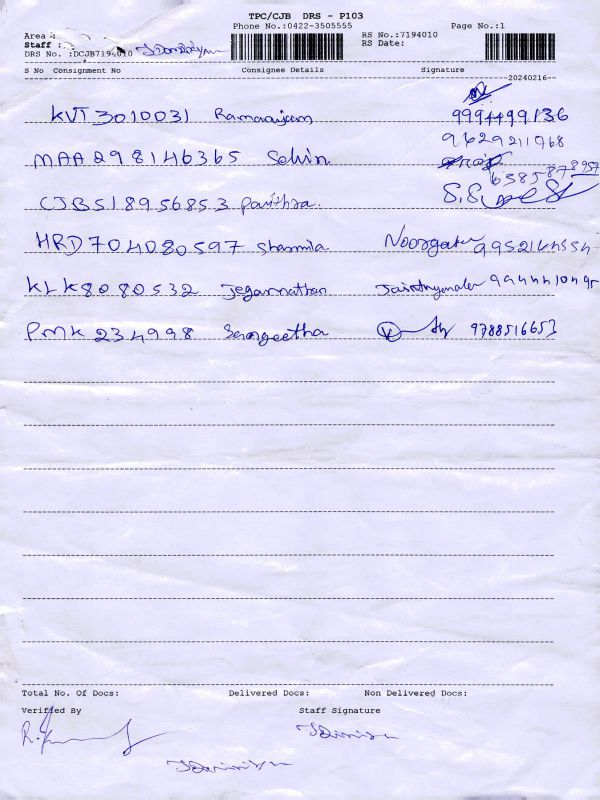 TPC/CJB DRS - P103
Phone No.:0422-3505555 Page No.:1
Area :
Staff :
RS No.:7194010
DRS No. :DCJB7194010
RS Date:
S No Consignment No Consignee Details Signature
20240216
KVT3010031 Ramanujam 9994499136
9629211968
MAA298146365 Selvin
CJB518956853 Pavithra
HRD704080597 Sharmila Noorgate 9952164554
KLK8080532 Jegannathan
PMK234998 Sangeetha 9788516653
Total No. Of Docs: Delivered Docs: Non Delivered Docs:
Verified By Staff Signature